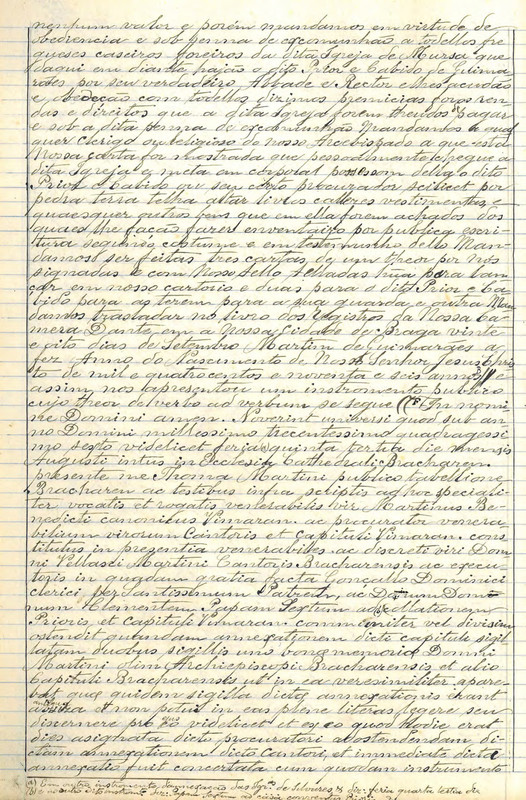 nenhum valor e porém mandamos em virtude de
obediencia e sob penna de excomunhão a todellos fre
gueses caseiros foreiros da dita Igreja de Mursa que
daqui em diante hajão o dito Prior e Cabido de Guima
rães por seu verdadeiro Abbade e Rector e lhes acudão
e obedeção com todellos dizimos premicias foros ren
das e direitos que a dita Igreja forem theudos de pagar
e sob a dita penna de excomunhão Mandamos a qual
quer Clerigo ou religioso do nosso Arcebispado a que esta
Nossa carta for mostrada que pessoalmente chegue a
dita Igreja e meta em corporal possessom della o dito
Prior e Cabido ou seu certo procurador scilicet por
pedra terra telha altar livros calices vestimentas e
quaesquer outros bens que em ella forem achados dos
quaes lhe fação fazer enventairo por publica escri
tura segundo costume e em testemunho dello Man
damos ser feitas tres cartas de um theor por nós
signadas e com Nosso Sello selladas hũa para lan
çar em nosso cartorio e duas para o dito Prior e Ca
bido para as terem para a sua guarda e outra Man
damos trasladar no livro dos registros da Nossa Ca
mera Dante em a Nossa Cidade de Braga vinte
e oito dias de Setembro Martim de Guimarães a
fez Anno do Nascimento de Nosso Senhor Jesus Chris
to de mil e quatrocentos e noventa e seis annos e
assim nos apresentou um instrumento publico
cujo theor de verbo ad verbum se segue In nomi
ne Domini amen. Noverint universi quod sub an
no Domini millessimo trecentessimo quadragessi
mo sexto videlicet feria quinta tertia die mensis
Augusti intus in Ecclesia Cathedrali Bracharen
presente me Thoma Martini publico tabellione
Bracharen ac testibus infra scriptis ad hoc speciali
ter vocatis et rogatis venerabilis vir Martinus Be
nedicti canonicus Vimaran. ac procurator venera
bilium virorum Cantoris et Capituli Vimaran. cons
titutus in presentia venerabiles ac discreti viri Dom
ni Vellasci Martini Cantoris Bracharensis ac execu
toris in quadam gratia facta Goncallo Dominici
clerici per Santissimum Patrem, ac Domnum
num Clementem Papam Sextum ad collationem
Prioris et Capituli Vimaran. communiter vel divisim
ostendit quandam annexationem dicto capitulo sigil
latam duobus sigillis uno bone memorie Domni
Martini olim Archiepiscopi Bracharensis et alio
Capituli Bracharensis ut in ea veresimiliter apare
bat que quidem sigilla dicte annexationis erant
antiqua et non potuit in eas plene literas legere seu
discernere pro videlicet et ex eo quod hodie erat
dies asignata dicto procuratori ad ostendendam di
ctam annexationem dicto Cantori, et immediate dicta
annexatio fuit concertata cum quodam instrumento
(a) Em outro instrumento da annexação das Igr.as de Silvares &